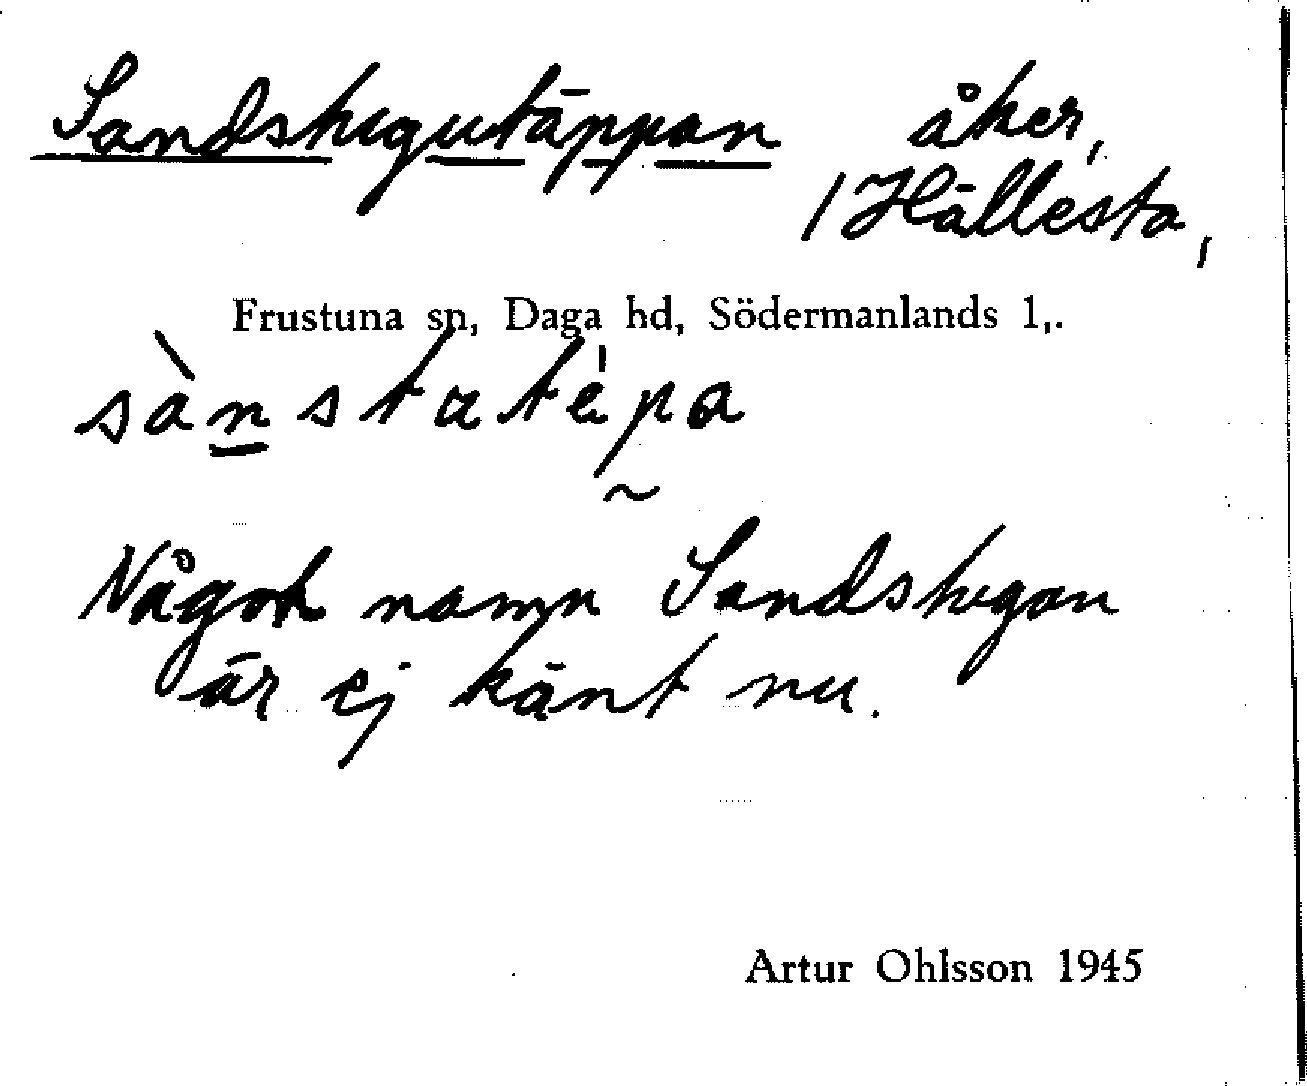 Sandstugutäppan åker,
/ Hällesta,
Frustuna sn, Daga hd, Södermanlands l,.
sànstatépa
Något namn Sandstugan
är ej känt nu.
Artur Ohlsson 1945